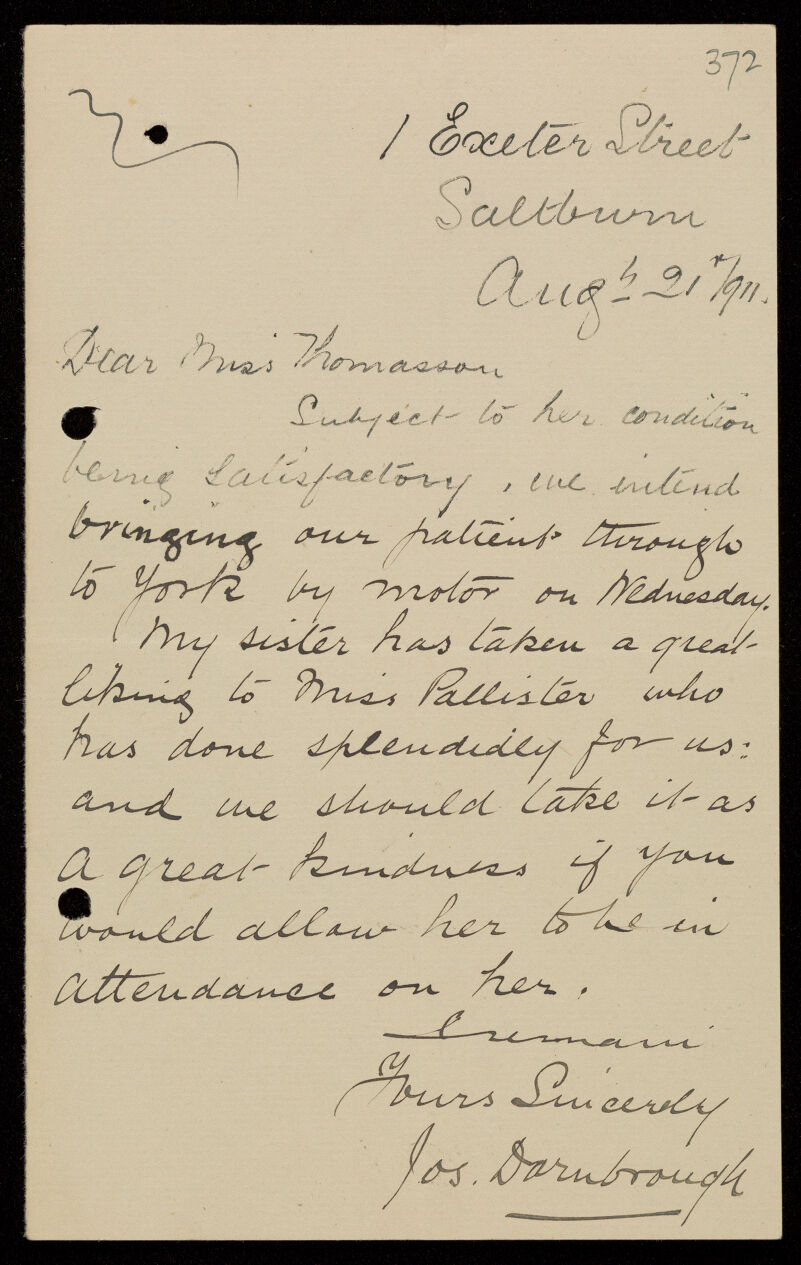 372
1 Exeter Street
Saltburn
Augh 21st/911.
Dear Miss Thomasson
Subject to her condition
being satisfactory, we intend
bringing our patient through
to York by motor on Wednesday.
My sister has taken a great
liking to Miss Pallister who
has done splendidly for us:
and we should take it as
a great kindness if you
would allow her to be in
attendance on her.
I remain
Yours Sincerely
Jos. Darnbrough